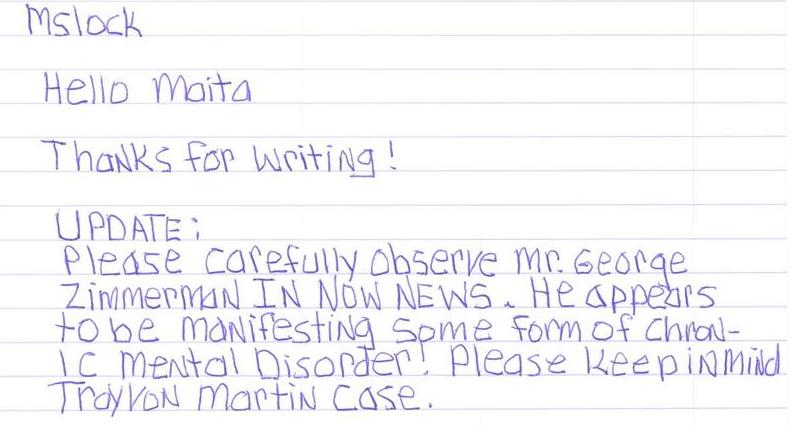 Mslock
Hello Maita
Thanks for writing!
UPDATE:
Please carefully observe Mr. George
Zimmerman IN NOW NEWS. He appears
to be manifesting some form of chron-
ic mental Disorder! Please keep in mind
Trayvon Martin Case.